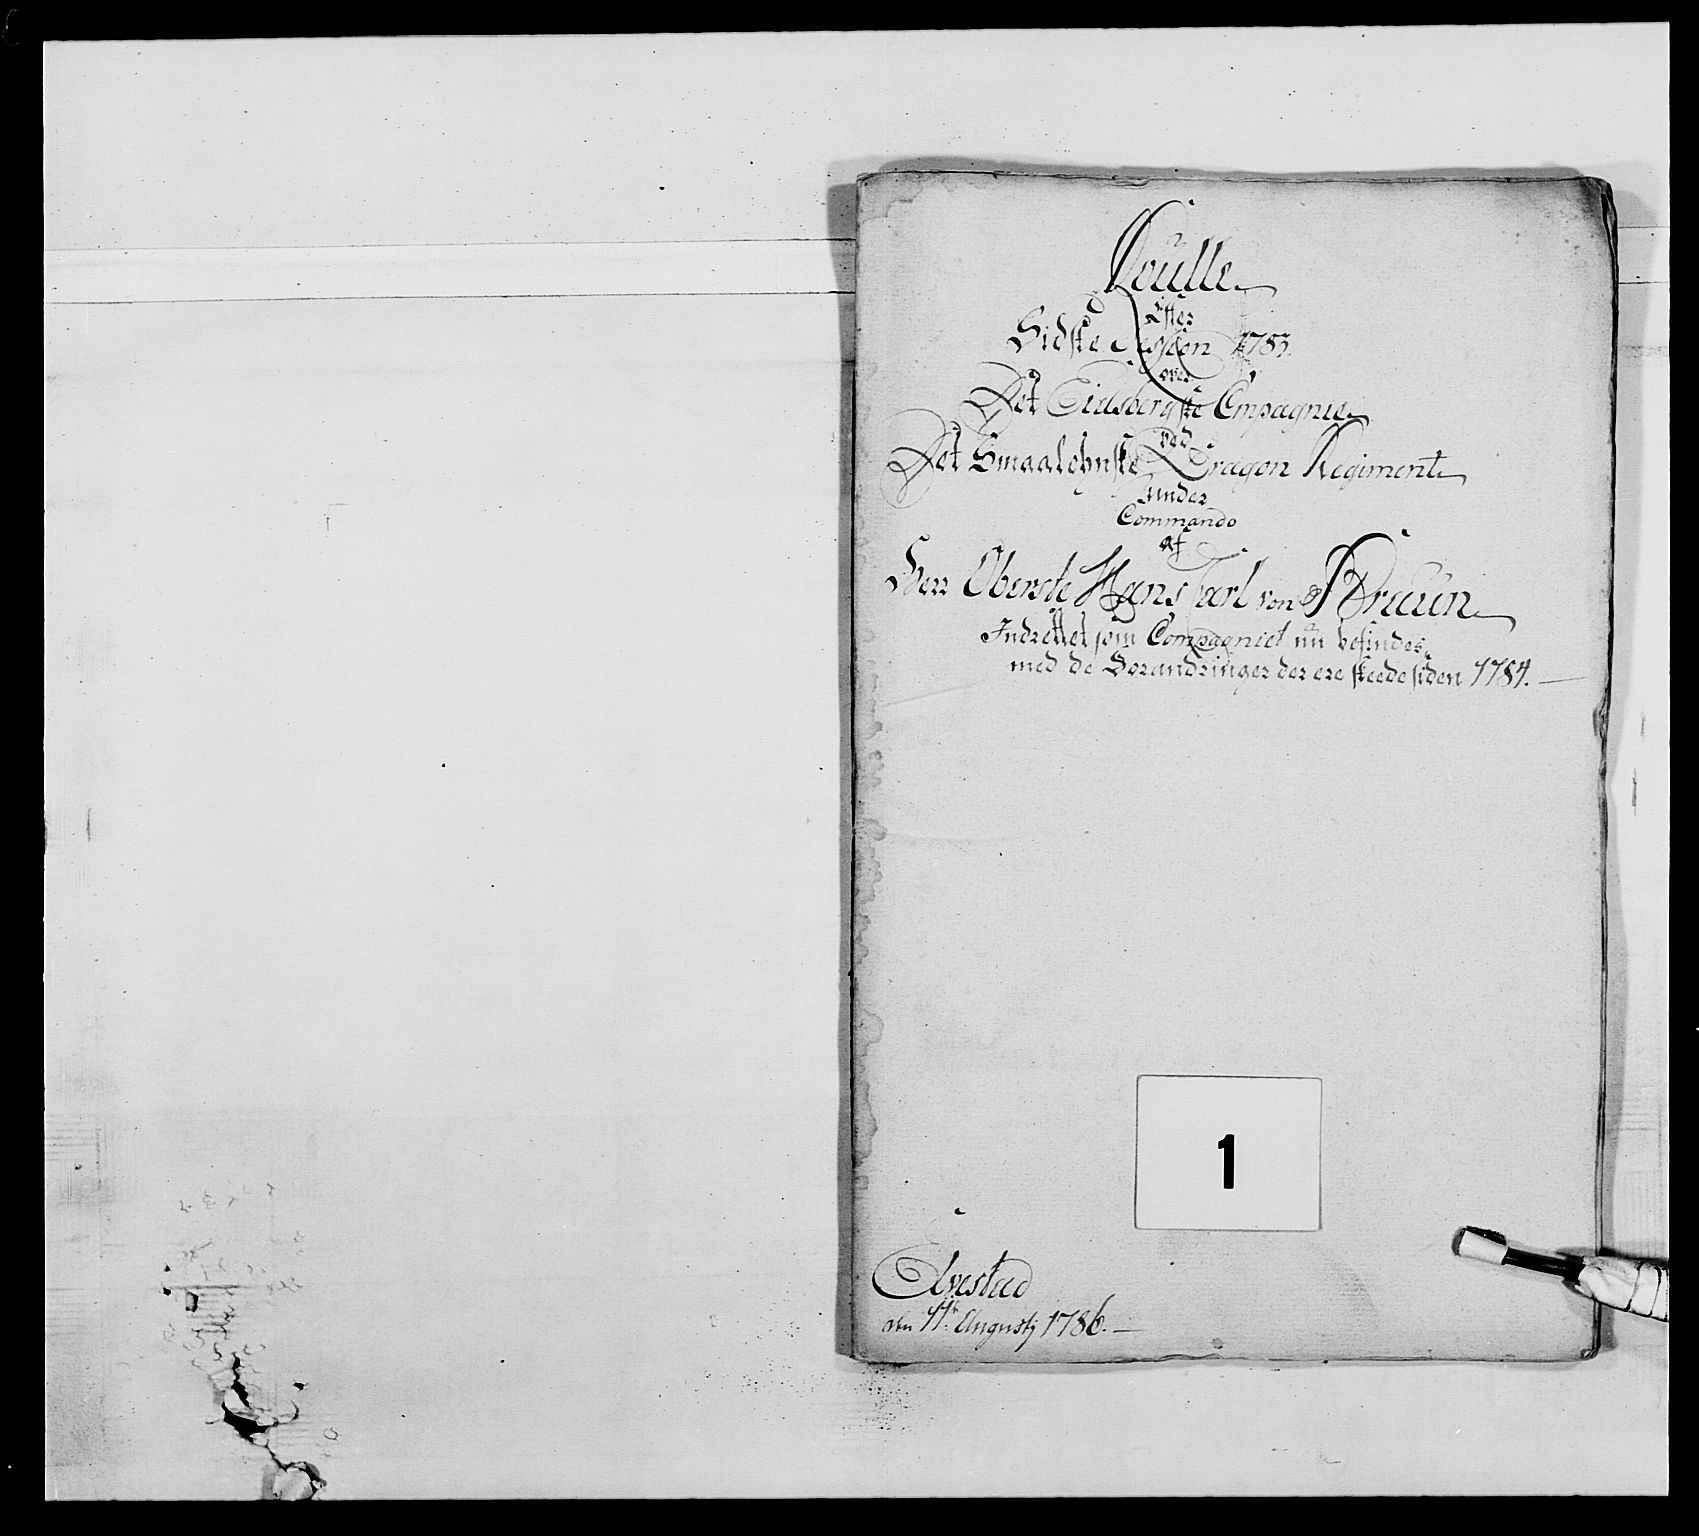 Roulle
Efter
Sidste Session 1783.
over
Det Eidsbergske Compagnie
ved
Det Smaalehnske Dragon Regiment
under
Commando
af
Herr Oberste Hans Carl von Braun
Indrettet som Compagniet nu befindes,
med de Forandringer der ere skeede siden 1784.
1
Elvestad
den 11te Augustj 1786.